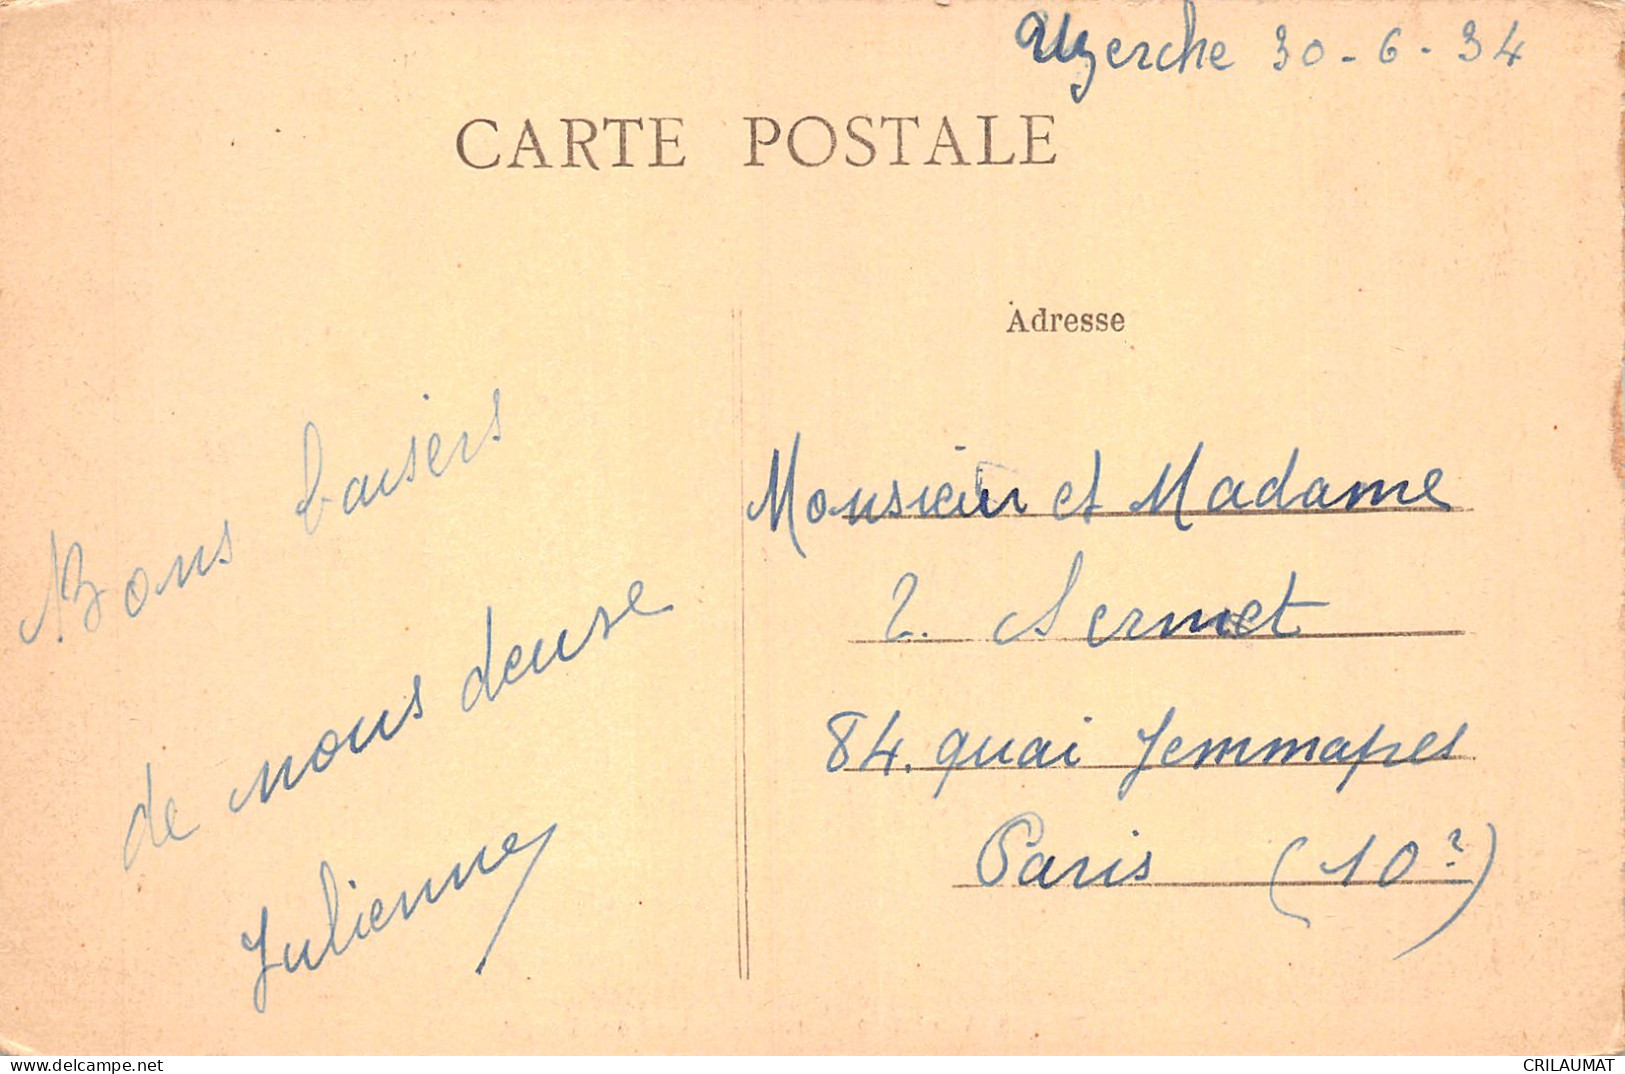 Uzerche 30-6-34
CARTE POSTALE
Adresse
Bons baisers
de nous deuse
Julienne
Monsieur et Madame
2. Sermet
84. quai Jemmapes
Paris (10e)
www.delcampe.net
CRILAUMAT